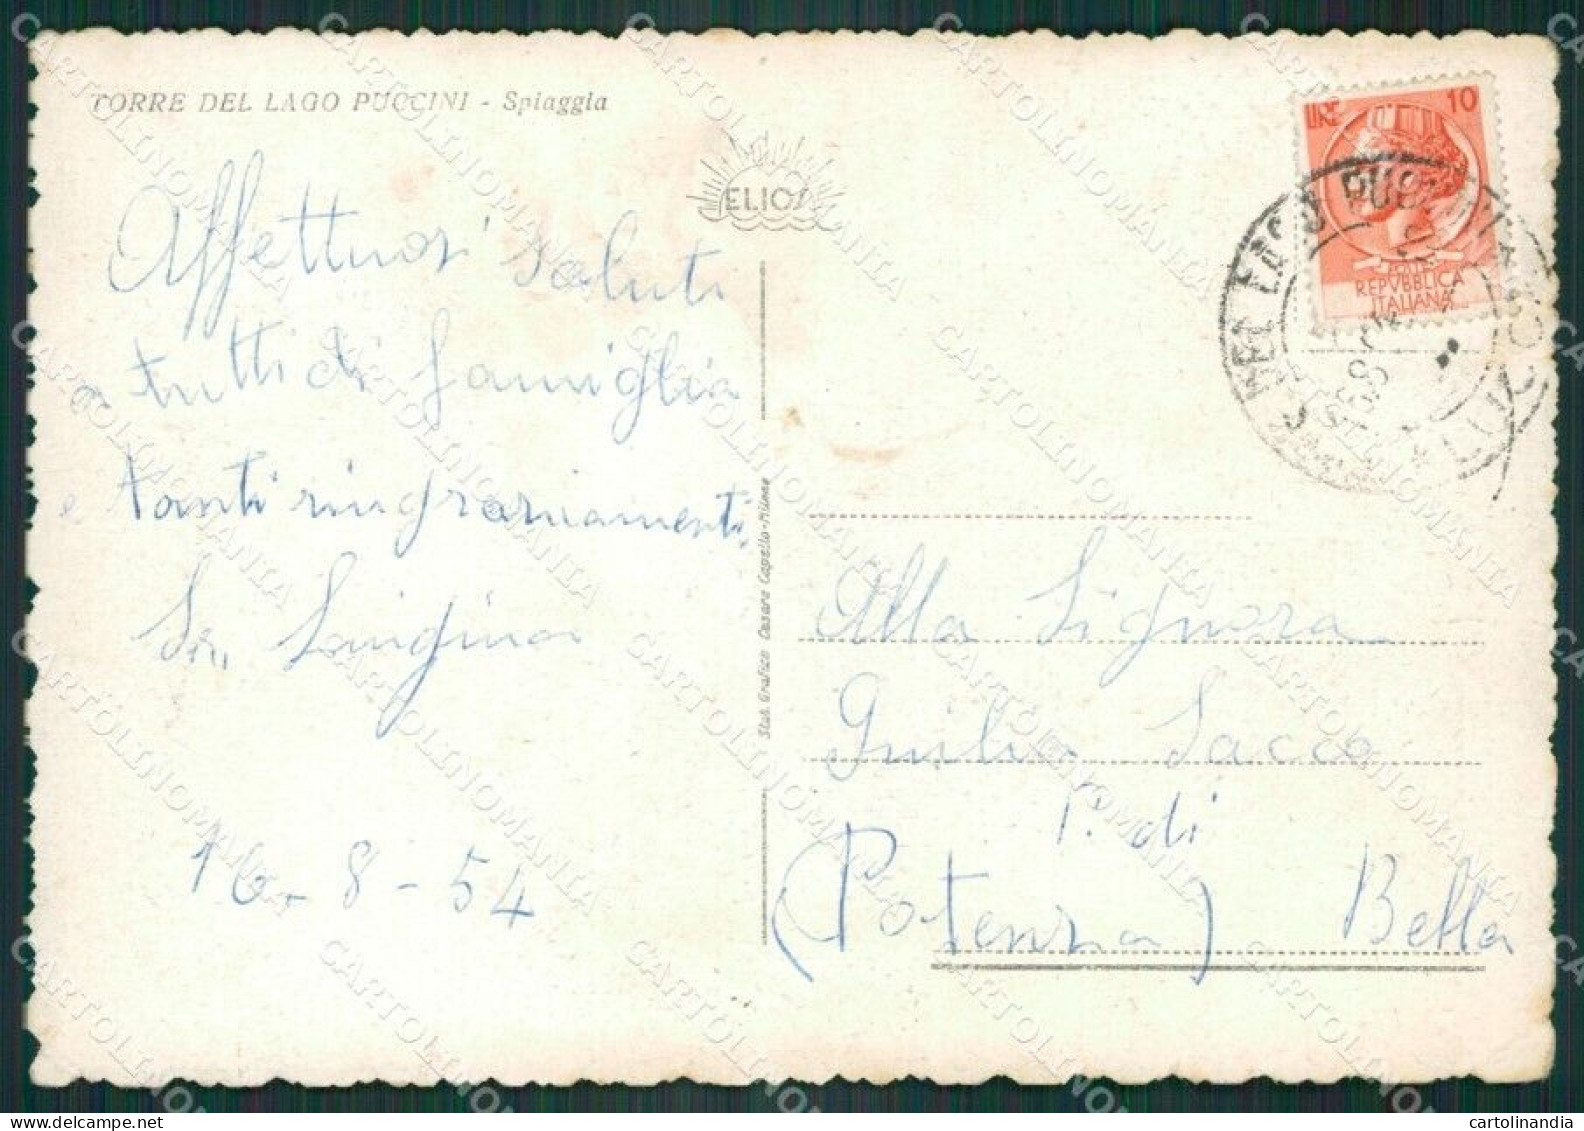 TORRE DEL LAGO PUCCINI - Spiaggia
ELIOS
LIRE 10
REPVBBLICA
ITALIANA
Affettuosi saluti
a tutti di famiglia
e tanti ringraziamenti
Luigina
16 - 8 - 54
Stab. Grafico Cesare Capello - Milano
Alla Signora
Giulia Sacco
di
(Potenza) Bella
cartolinandia